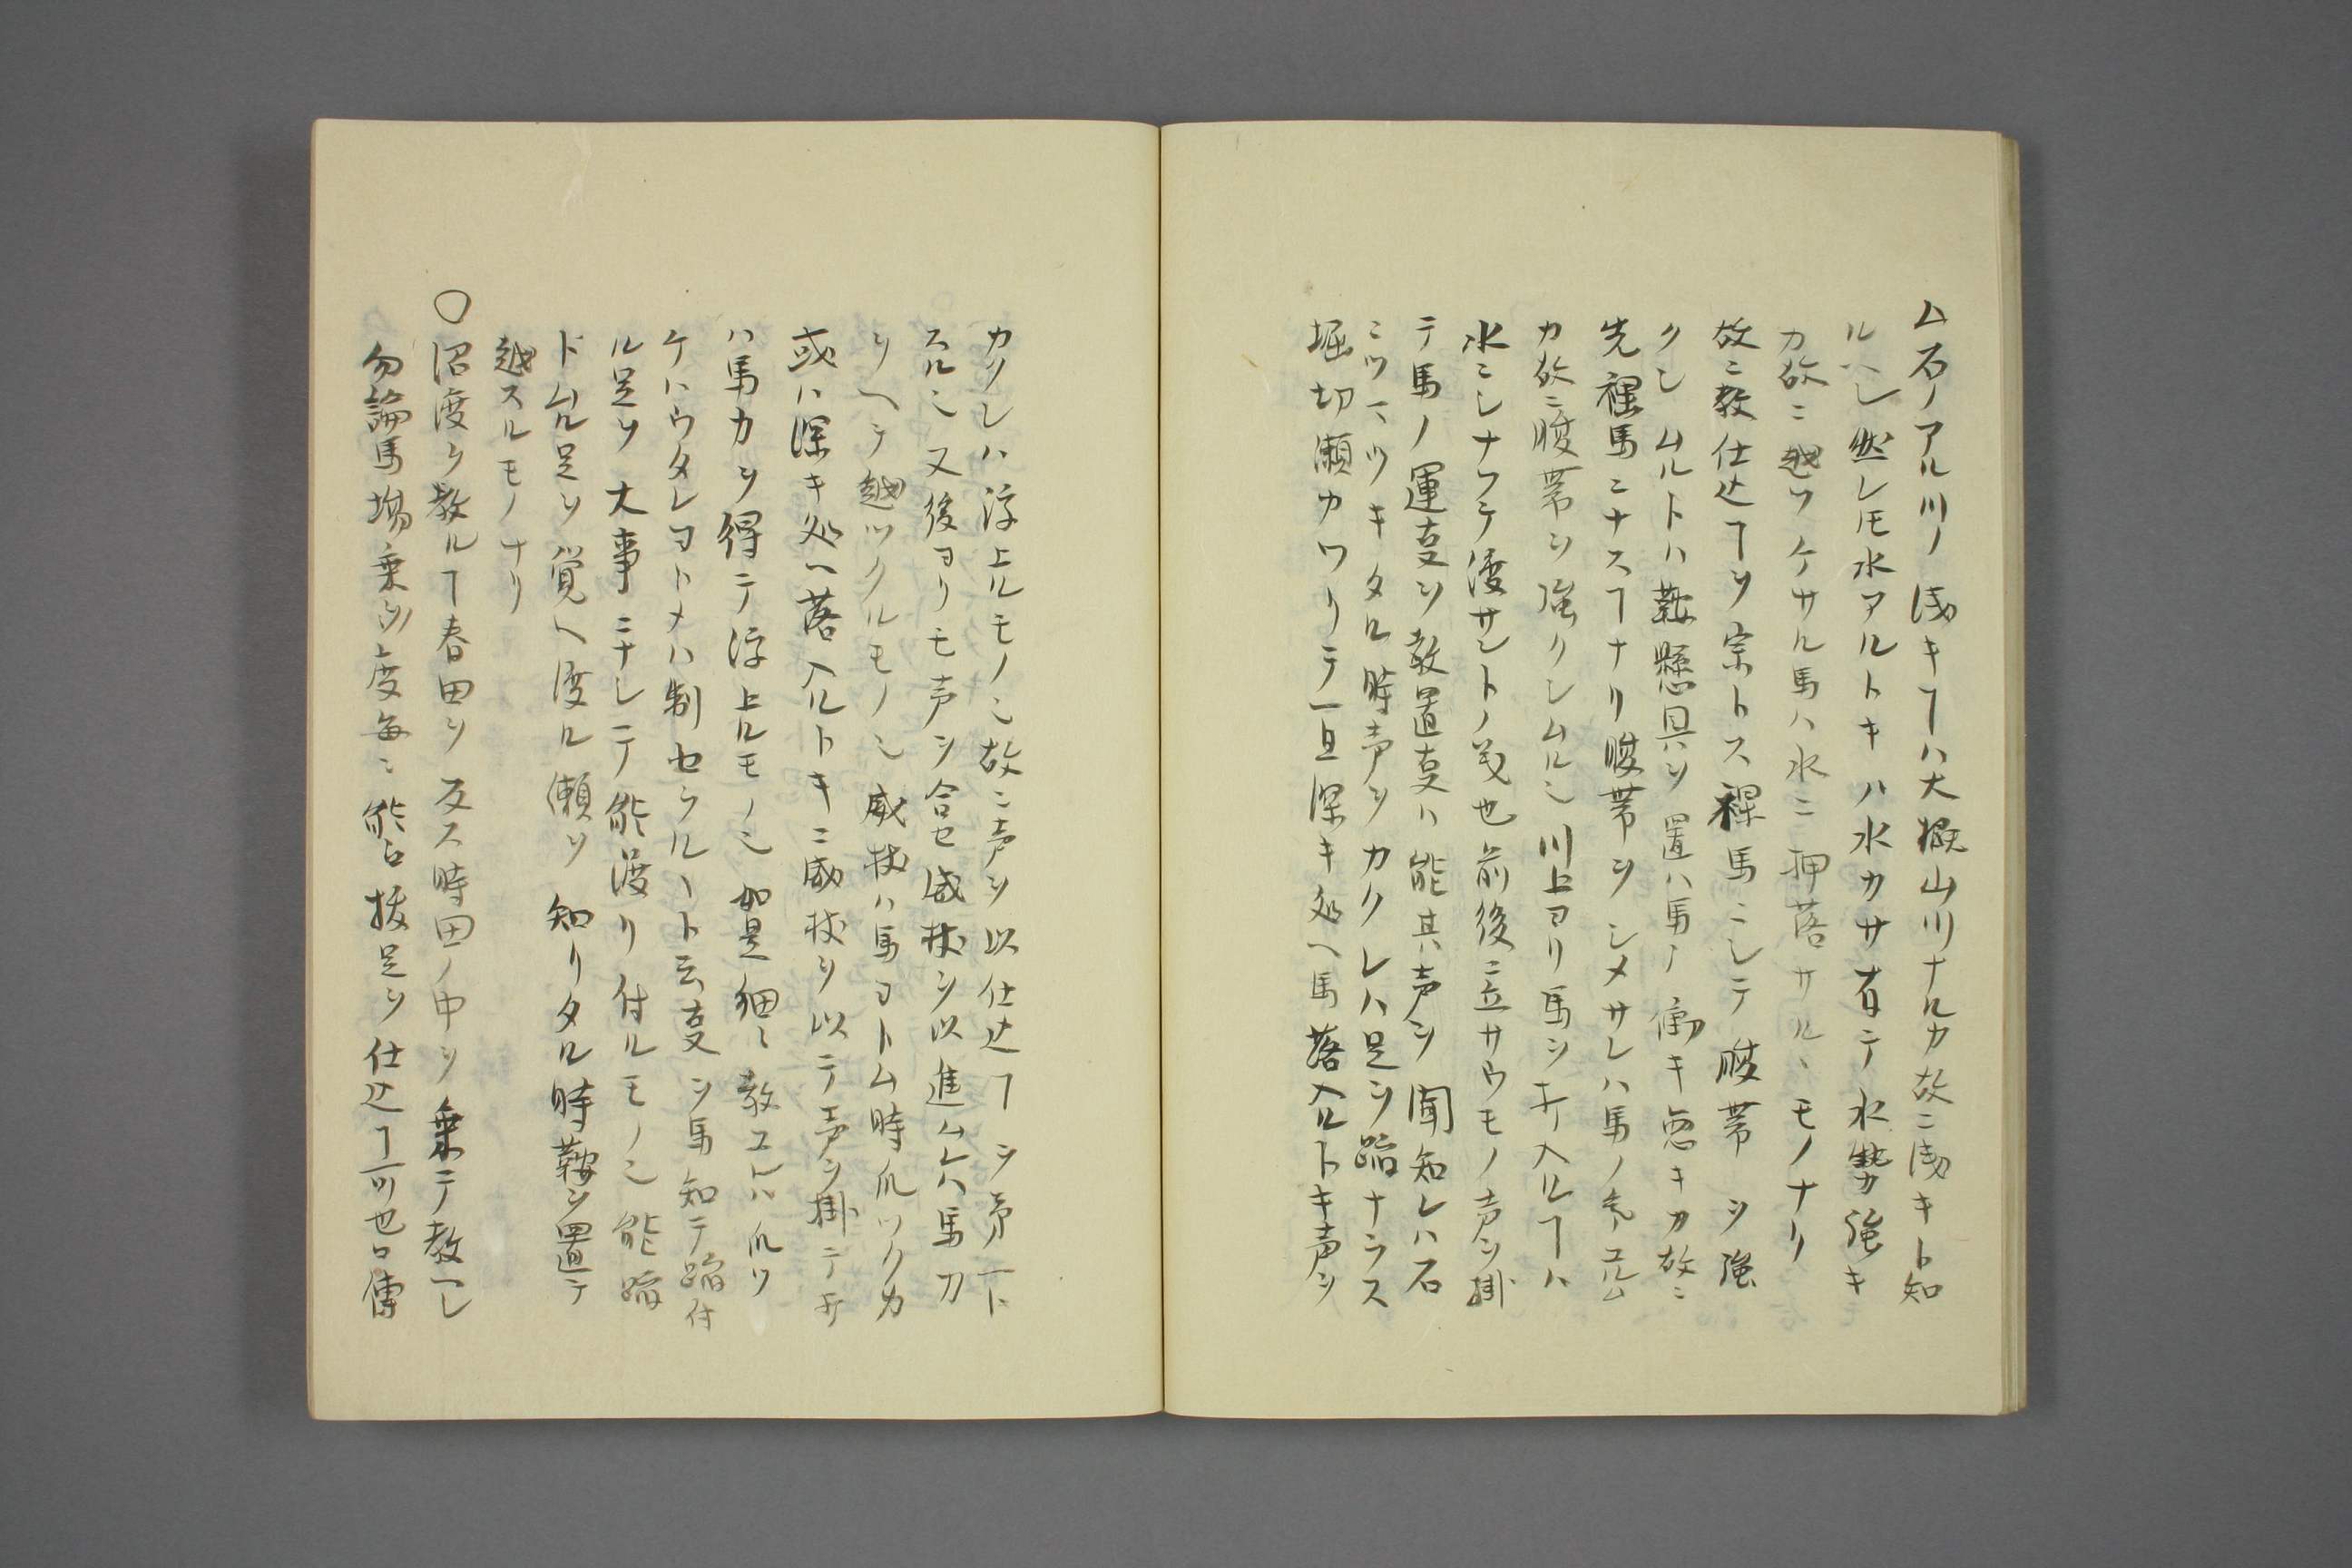 ム石ノアル川ノ浅キヿハ大概山川ナルカ故ニ浅キト知
ルヘシ然レ𪜈水アルトキハ水カサ有テ水勢強キ
カ故ニ越ツケサル馬ハ水ニ押落サルヽモノナリ
故ニ教仕込ヿヲ宗トス裸馬ニシテ腹帯ヲ強
クシムルトハ鞍懸具ヲ置ハ馬ノ働キ悪キカ故ニ
先裸馬ニナスヿナリ腹帯ヲシメサレハ馬ノ気ユルム
カ故ニ腹帯ヲ強クシムル也川上ヨリ馬ヲ入ルヿハ
水ニシナワテ渡サントノ義也前後ニ立サウモノ声ヲ掛
テ馬ノ運叓ヲ教置叓ハ能其声ヲ聞知レハ石
ニツマツキタル時声ヲカクレハ足ヲ蹈ナラス
堀切瀬カワリテ一旦深キ処ヘ馬落入ルトキ声ヲ
カクレハ浮上ルモノ也故ニ声ヲ以仕込ヿヲ第一ト
スル也又後ヨリモ声ヲ合セ威杖ヲ以進ムレハ馬力
ヲヘテ越ツクルモノ也威杖ハ馬ヨトム時爪ツクカ
或ハ深キ処ヘ落入ルトキニ威杖ヲ以テ声ヲ掛テ
ハ馬カヲ得テ浮上ルモノ也如是細ニ教ユレハ爪ツ
ケハウタレヨトメハ制セラルヽト云叓ヲ馬知テ蹈付
ル足ヲ大事ニナシテ能渡リ付ルモノ也能蹈
ドムル足ヲ覚ヘ渡ル瀬ヲ知リタル時鞍ヲ置テ
越スルモノナリ
〇沼渡ヲ教ルヿ春田ヲ反ス時田ノ中ヲ乗テ教ヘシ
勿論馬場乗ノ度毎ニ能〻抜足ヲ仕込ヿ可也口傳